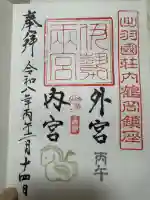 出羽國荘内鶴岡鎮座
伊勢両宮
外宮
丙午
内宮
奉拝
令和八年丙午二月十四日